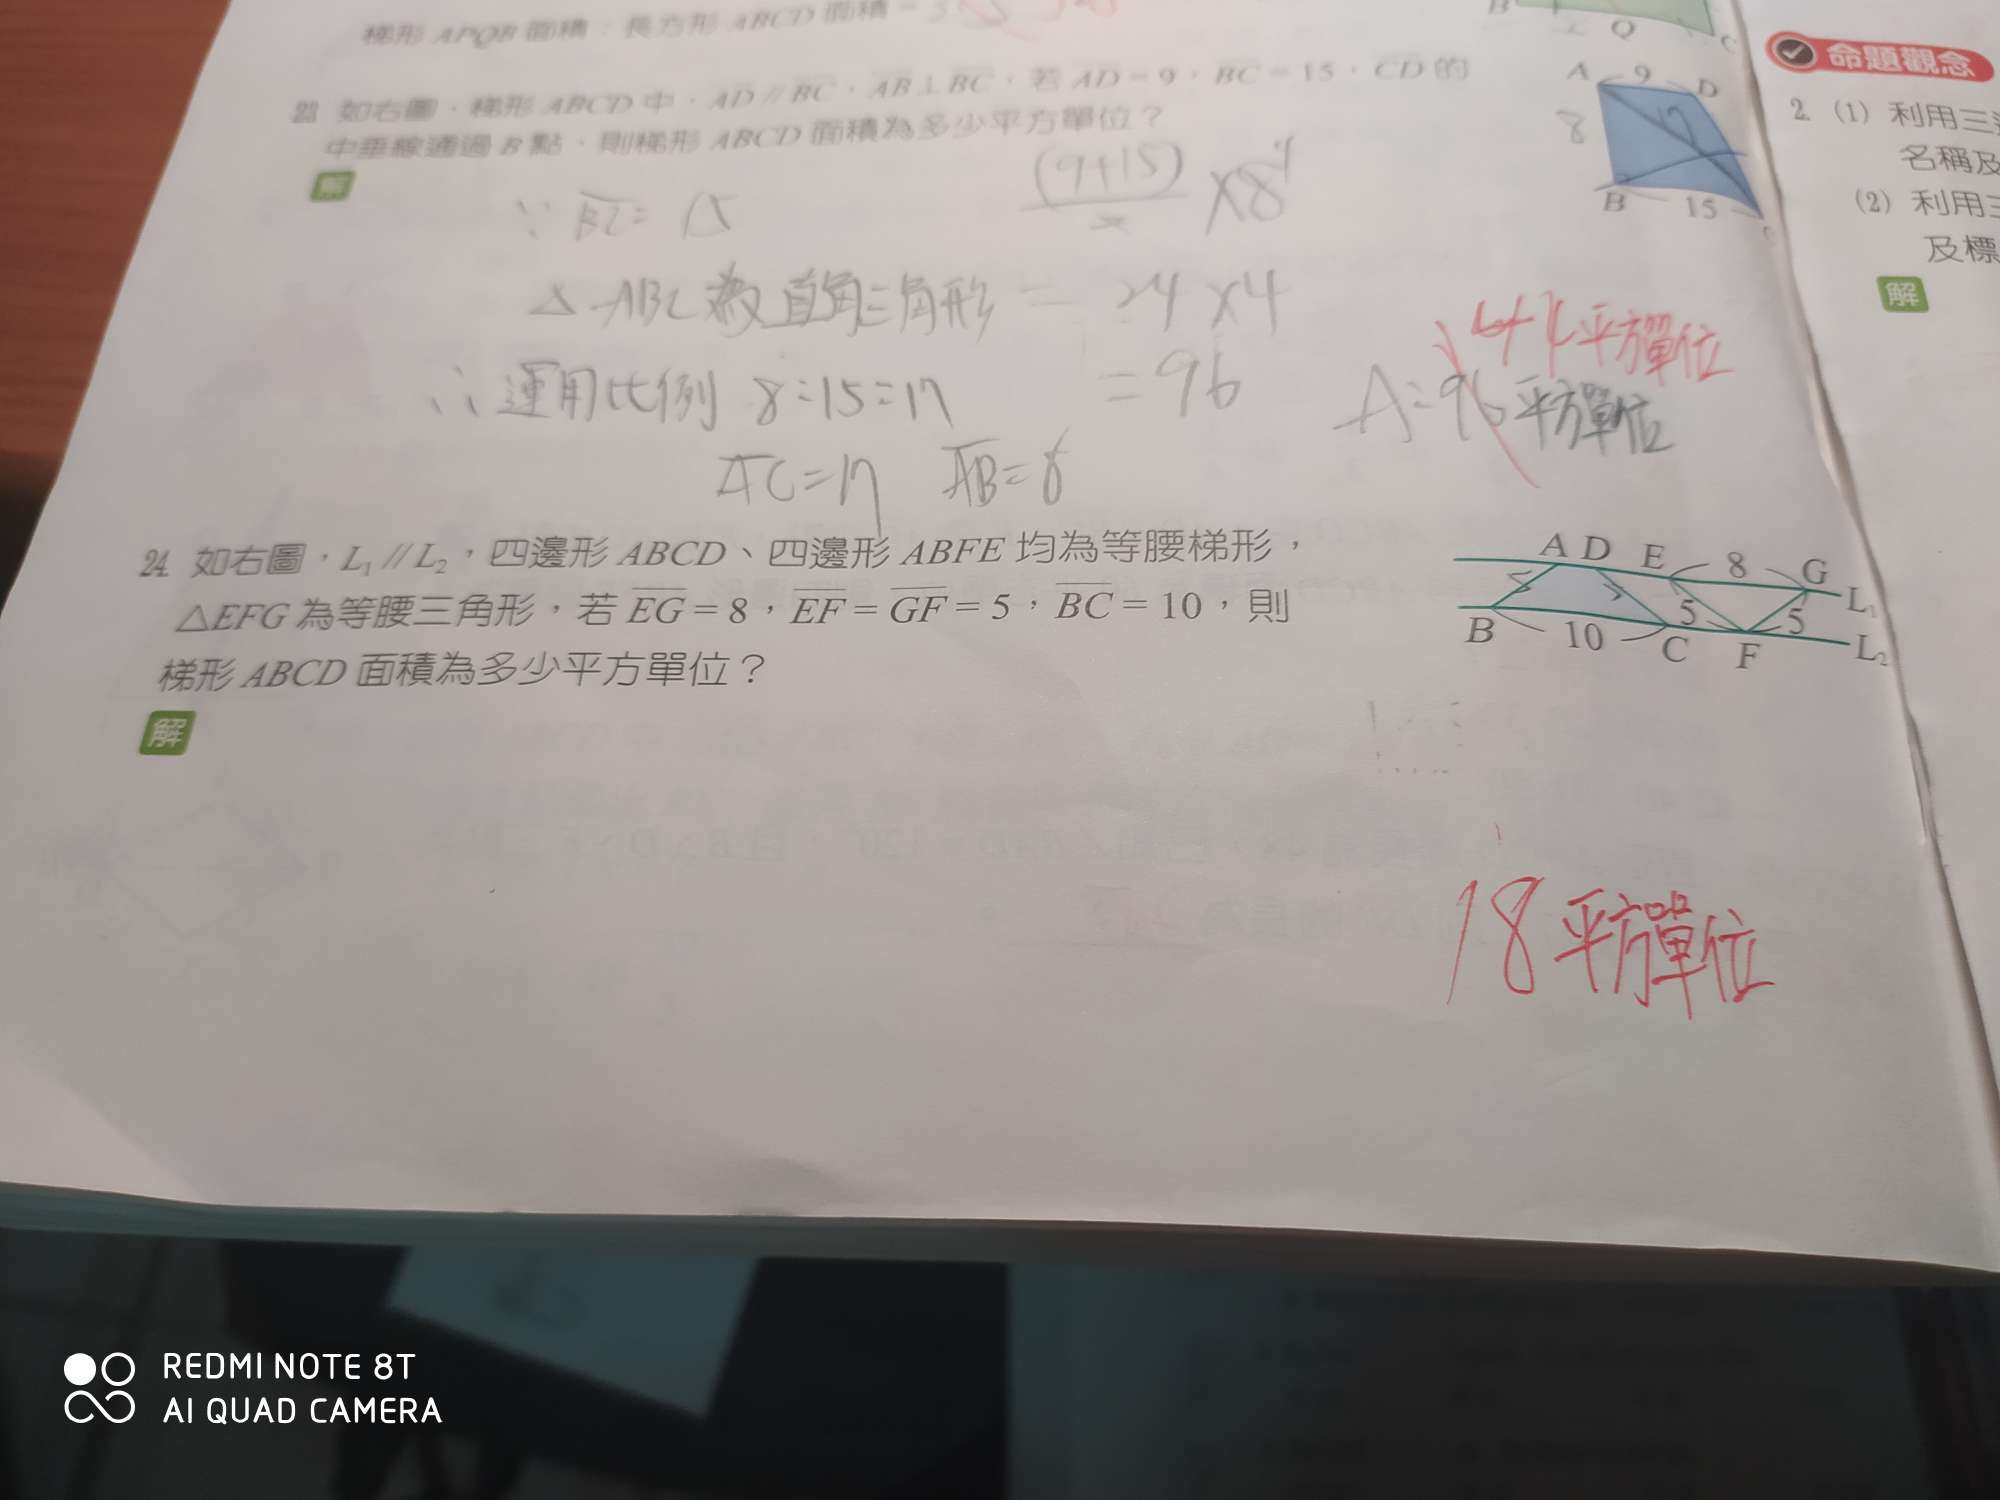 梯形 APQB 面積：長方形 ABCD 面積 = 5
B Q C
命題觀念
23. 如右圖，梯形 ABCD 中，AD // BC，AB ⊥ BC，若 AD = 9，BC = 15，CD 的
中垂線通過 B 點，則梯形 ABCD 面積為多少平方單位？
A 9 D
8 17
B 15 C
2. (1) 利用三
名稱及
(2) 利用三
及標
解
解
∵ BC = 15
(9+15) ×8 4
2
△ ABC 為直角三角形
= 24 ×4
∴ 運用比例 8:15:17
= 96
AC = 17 AB = 8
144平方單位
A: 96平方單位
24. 如右圖，L₁ // L₂，四邊形 ABCD、四邊形 ABFE 均為等腰梯形，
△EFG 為等腰三角形，若 EG = 8，EF = GF = 5，BC = 10，則
梯形 ABCD 面積為多少平方單位？
A D E 8 G L₁
5 5 5 5
B 10 C F L₂
解
18 平方單位
REDMI NOTE 8T
AI QUAD CAMERA